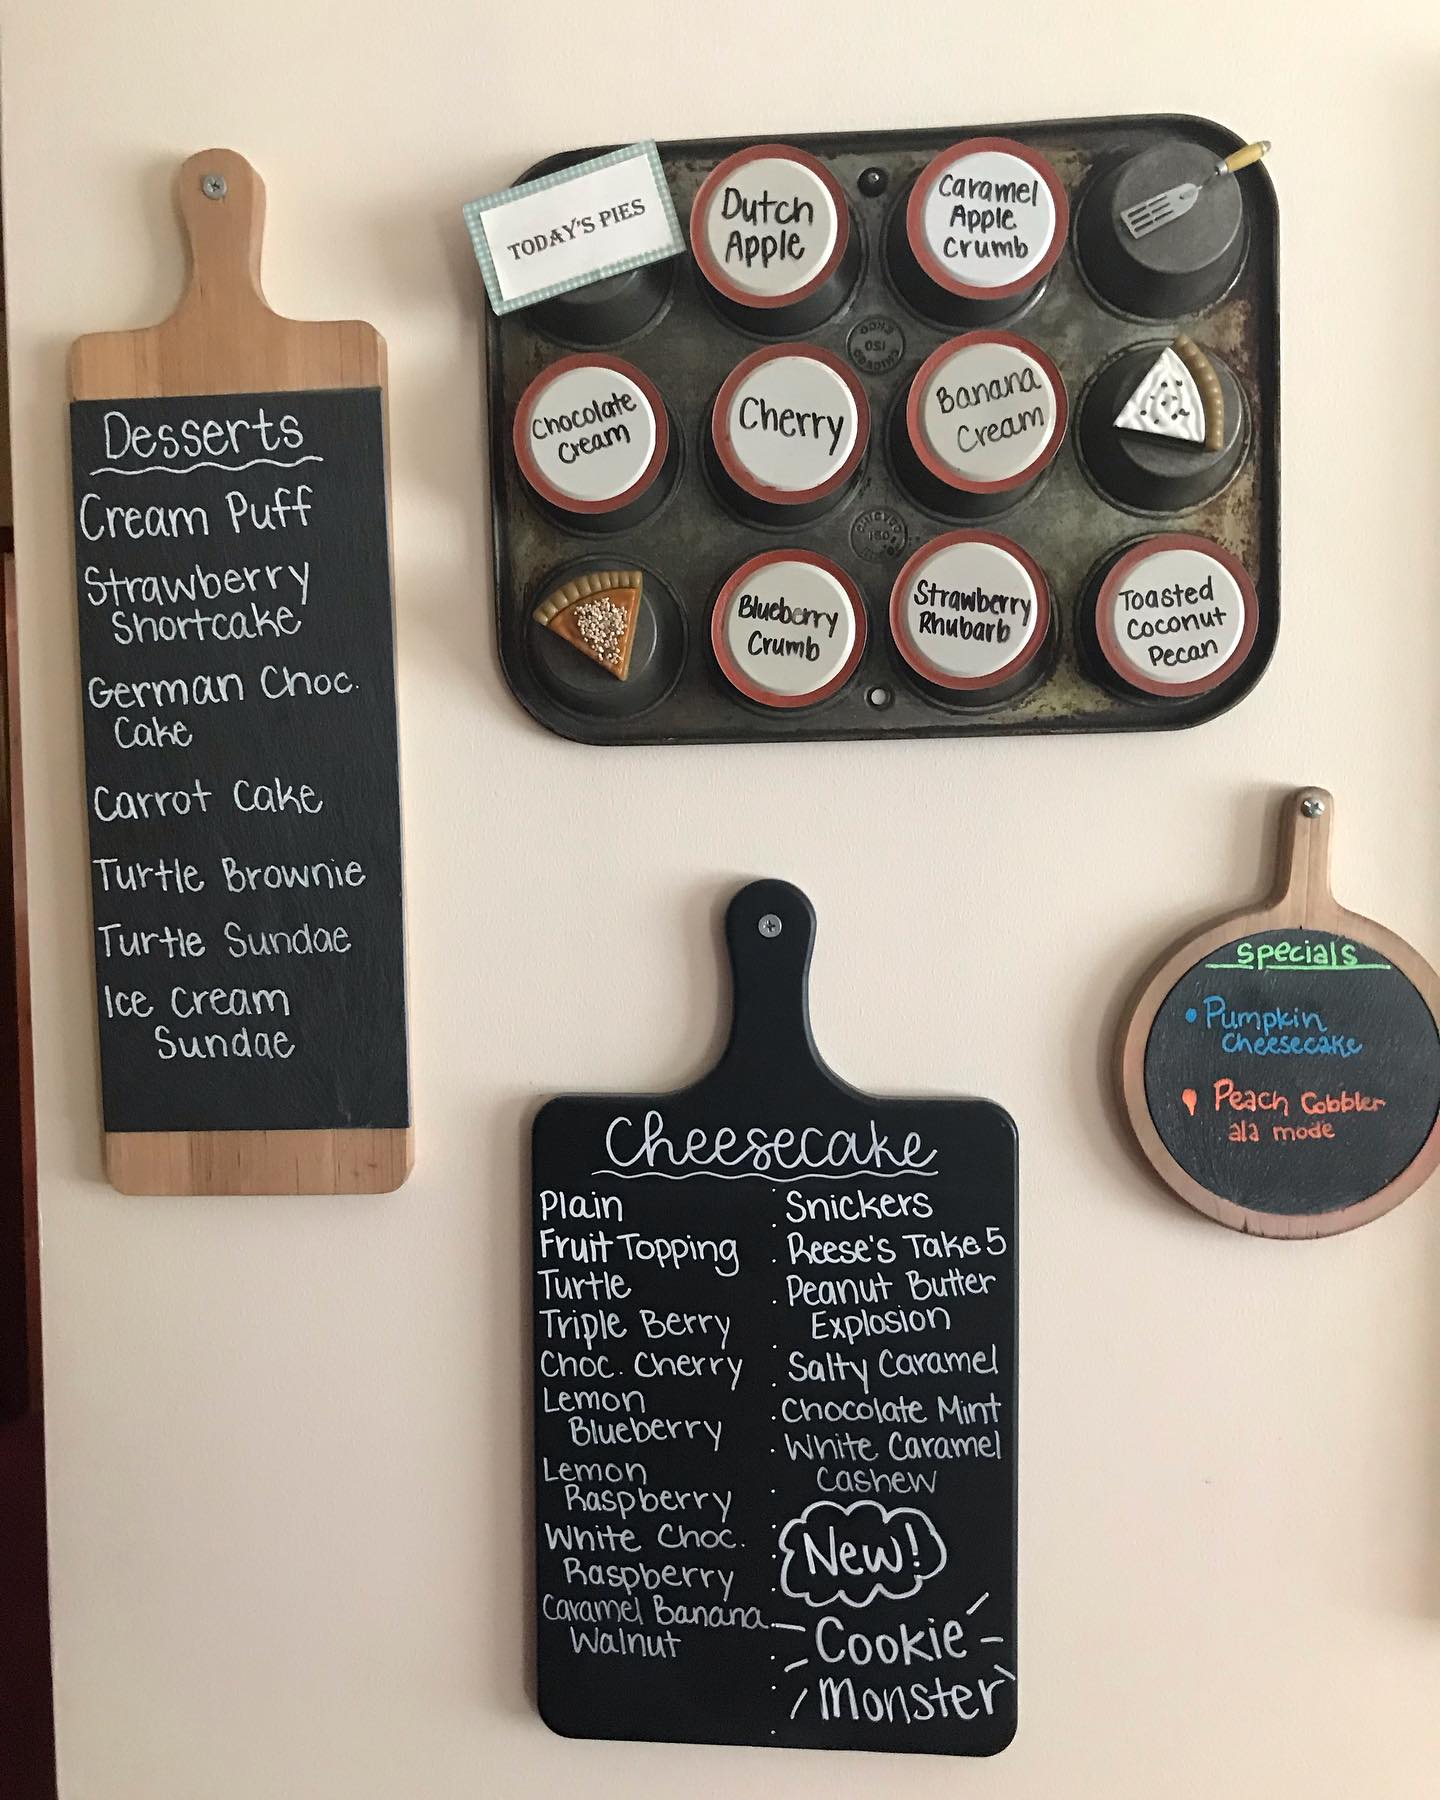 Desserts
Cream Puff
Strawberry
Shortcake
German Choc.
Cake
Carrot Cake
Turtle Brownie
Turtle Sundae
Ice Cream
Sundae
TODAY'S PIES
Dutch
Apple
Caramel
Apple
Crumb
Chocolate
Cream
Cherry
Banana
Cream
Blueberry
Crumb
Strawberry
Rhubarb
Toasted
Coconut
Pecan
Cheesecake
Plain
Fruit Topping
Turtle
Triple Berry
Choc. Cherry
Lemon
Blueberry
Lemon
Raspberry
White Choc.
Raspberry
Caramel Banana
Walnut
Snickers
Reese's Take 5
Peanut Butter
Explosion
Salty Caramel
Chocolate Mint
White Caramel
Cashew
New!
Cookie
Monster
Specials
• Pumpkin
Cheesecake
• Peach Cobbler
ala mode